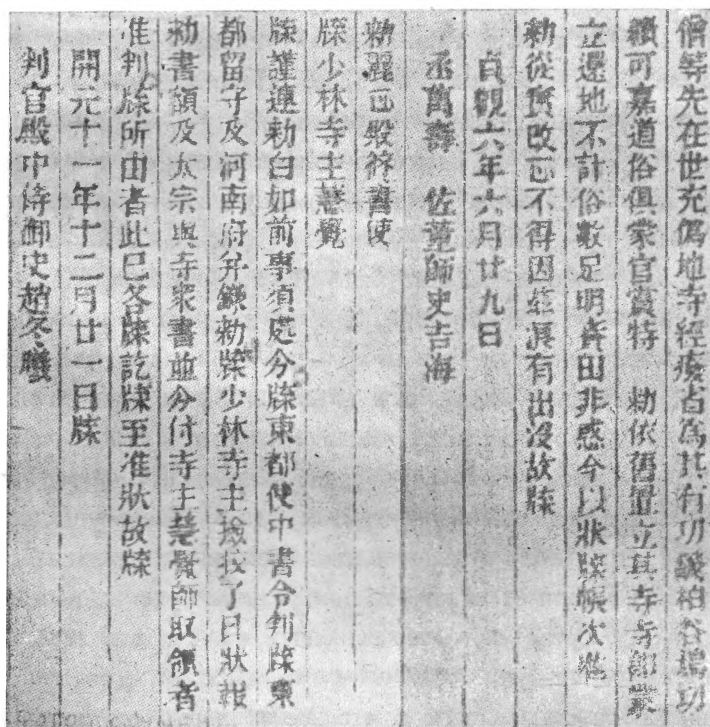 僧等先在世充偽地寺經廢省為其有功翻柏谷塢功
績可嘉道俗俱蒙官賞特　勅依舊置立其寺寺既蒙
立還地不計俗數足明齋田非惑今以狀牒帳次准
勅從實改正不得因茲浪有出沒故牒
貞觀六年六月廿九日
丞萬壽　佐董師史吉海
勅麗正殿修書使
牒少林寺主慧覺
牒謹連勅白如前事須處分牒東都使中書令判牒東
都留守及河南府并錄勅牒少林寺主撿挍了日狀報
勅書額及太宗與寺眾書並分付寺主慧覺師取領者
准判牒所由者此已各牒訖牒至准狀故牒
開元十一年十二月廿一日牒
判官殿中侍御史趙冬曦